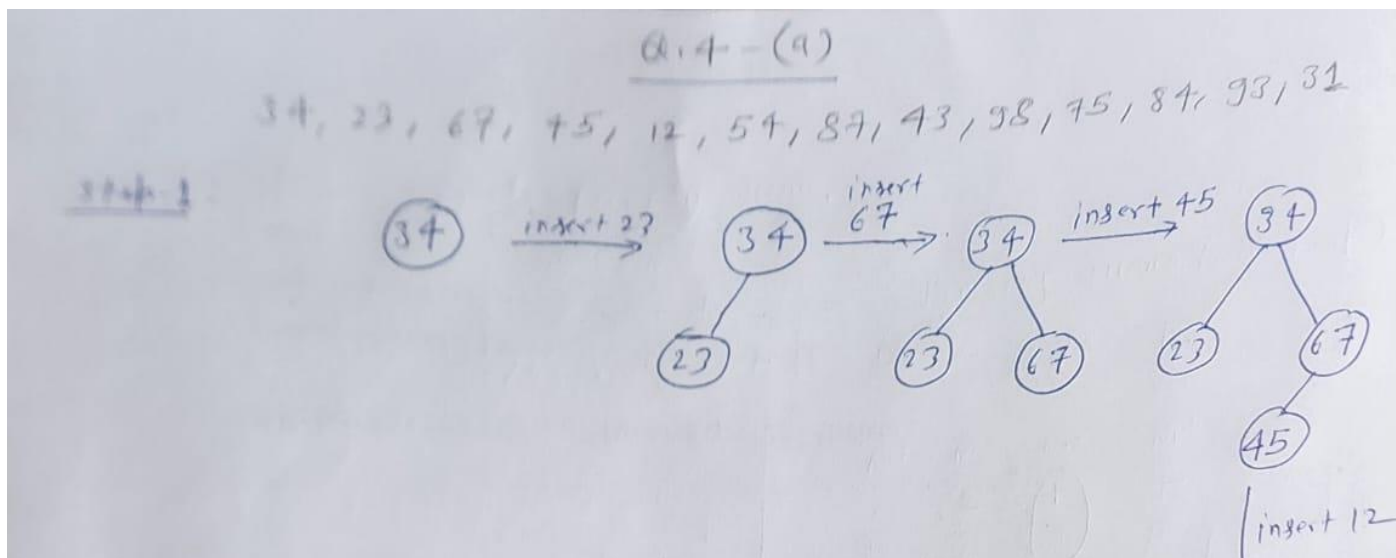 Q.4-(a)
34, 23, 67, 45, 12, 54, 87, 43, 98, 75, 84, 93, 31
34
insert 23
34
23
insert
67
34
23
67
insert 45
34
23
67
45
insert 12